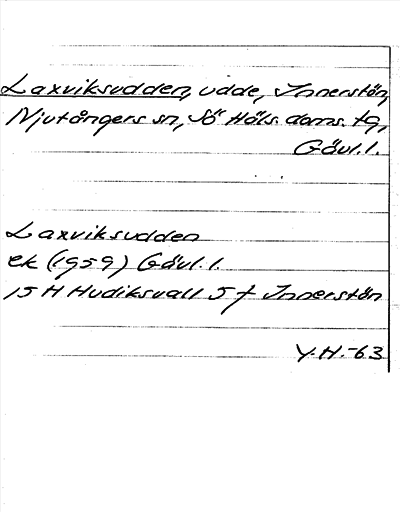 Laxviksudden, udde, Innerstön,
Njutångers sn, Sö Häls. doms. tg,
Gävl. l.
Laxviksudden
ek (1959) Gävl. l.
15 H Hudiksvall 5 f Innerstön
Y.H.-63